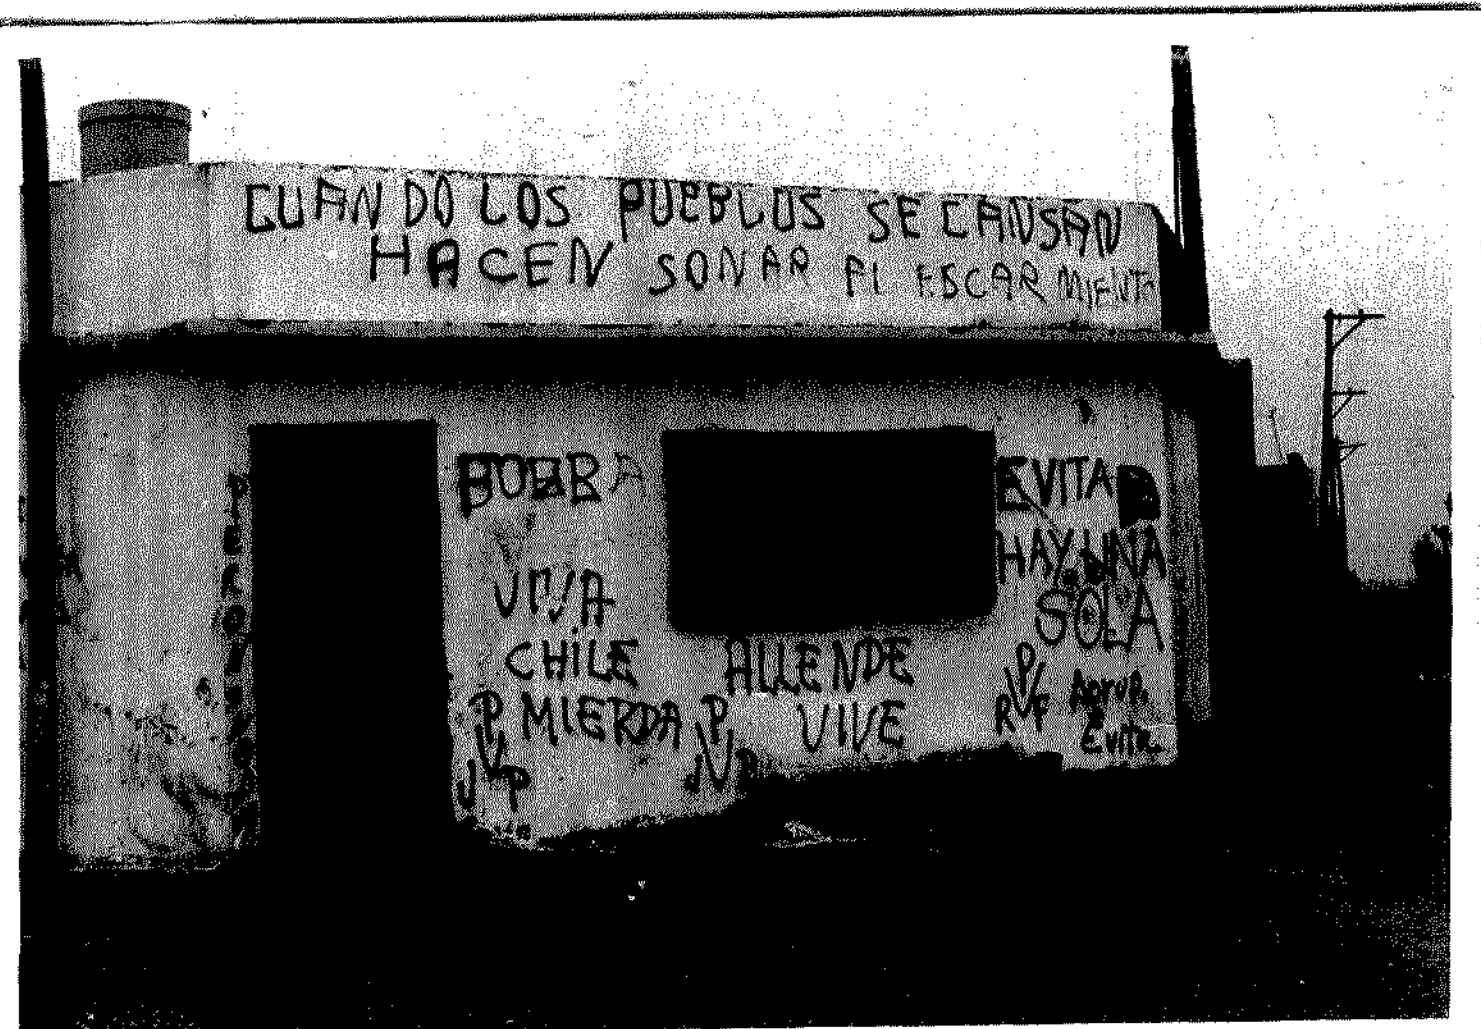 CUANDO LOS PUEBLOS SE CANSAN
HACEN SONAR EL ESCARMIENTO
VIVA
CHILE
MIERDA
P
V
J P
ALLENDE
VIVE
P
V
J P
EVITA
HAY UNA
SOLA
P
V
R F
Agrup.
Evita